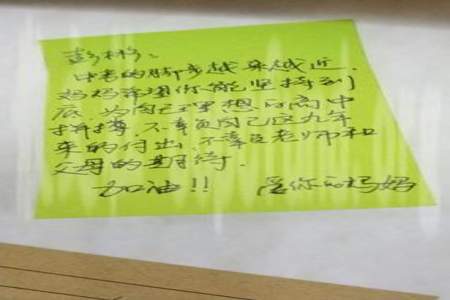 彭彬:
中考的脚步越来越近,
妈妈希望你能坚持到
底,为自己理想的高中
拼搏,不辜负自己这九年
来的付出,不辜负老师和
父母的期待.
加油!! 爱你的妈妈